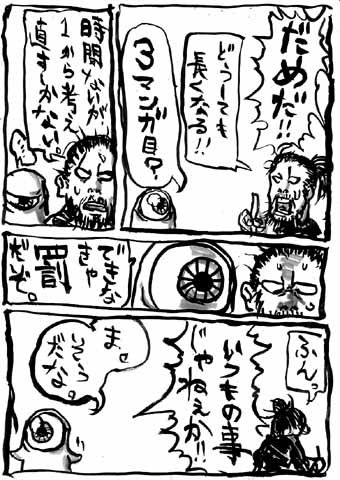 だめだ!!
どうしても
長くなる!!
3マンガ目?
時間ないが
1から考え
直すしかない。
できな
きゃ
罰
だぞ。
ふんっ
いつもの事
じゃねぇか!!
まぁ
いそう
だなよ。